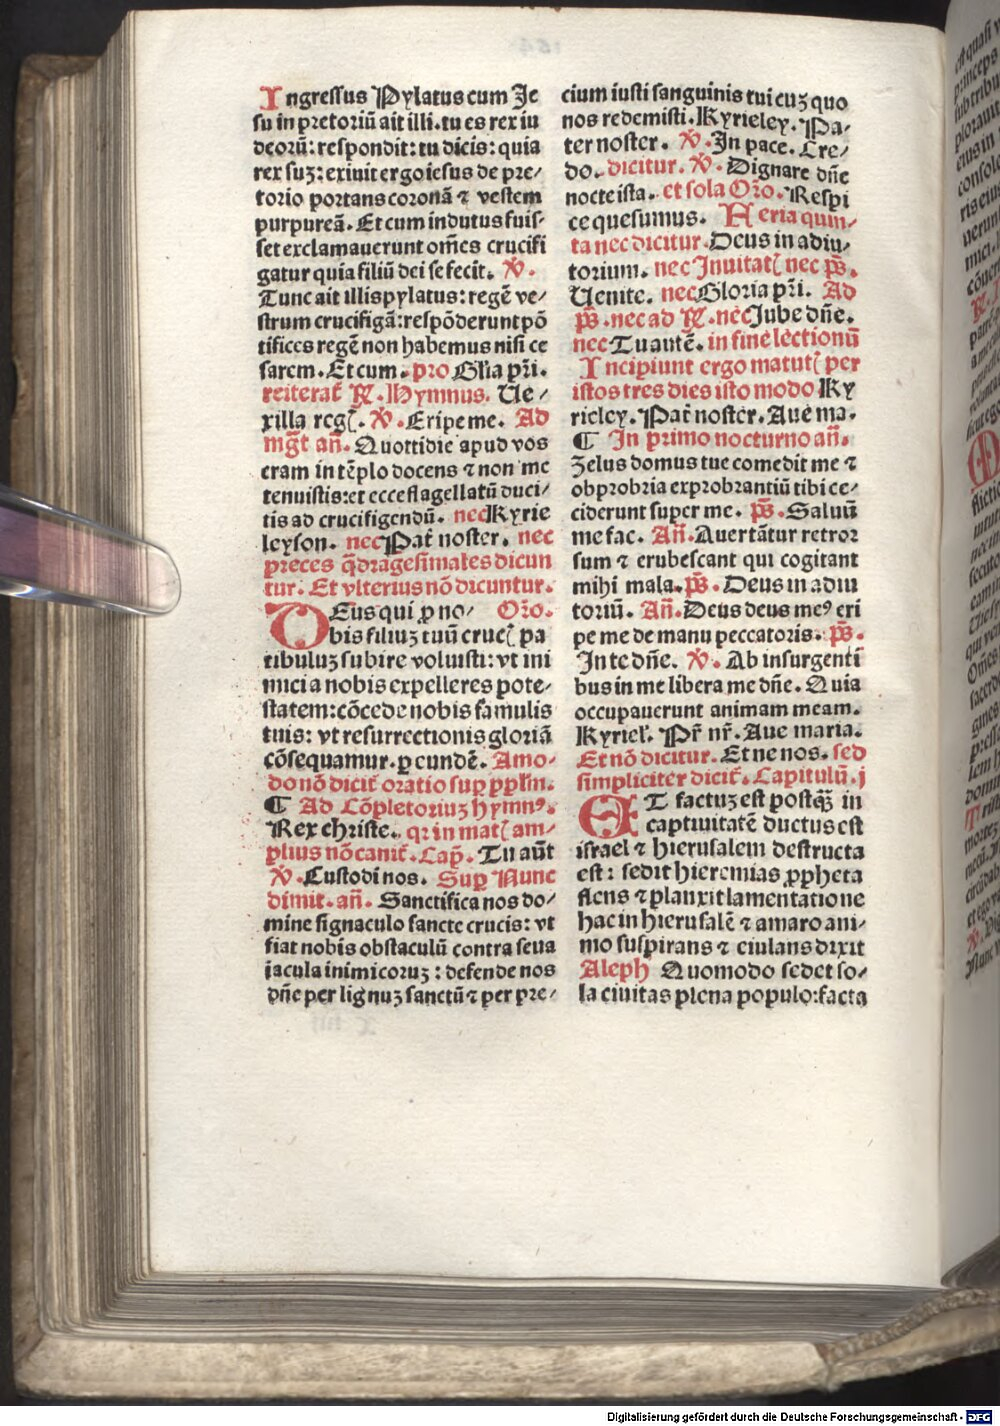 Ingressus Pylatus cum Je
su in pretoriū ait illi. tu es rex iu
deorū: respondit: tu dicis: quia
rex suꝫ: exiuit ergo iesus de pre⸗
torio portans coronā ⁊ vestem
purpureā. Et cum indutus fuis⸗
set exclamauerunt om̄es crucifi
gatur quia filiū dei se fecit. ℣.
Tunc ait illis pylatus: regē ve⸗
strum crucifigā: respōderunt pō
tifices regē non habemus nisi ce
sarem. Et cum. pro Gl̄ia pr̄i.
reiterat᷑ ℞. Hymnus. Ue⸗
xilla regꝭ. ℣. Eripe me. Ad
mg̅t an̄. Quottidie apud vos
eram in tēplo docens ⁊ non me
tenuistis: et ecce flagellatū duci⸗
tis ad crucifigendū. nec Kyrie
leyson. nec Pat᷑ noster. nec
preces q̄dragesimales dicun
tur. Et vlterius nō dicuntur.
DEus qui ꝓ no⸗ Or̄o.
bis filiuꝫ tuū crucꝭ pa
tibuluꝫ subire voluisti: vt ini
mici a nobis expelleres pote⸗
statem: cōcede nobis famulis
tuis: vt resurrectionis gloriā
cōsequamur. ꝑ eundē. Amo⸗
do nō dicit᷑ oratio suꝑ ppl̄m.
¶ Ad Cōpletoriuꝫ hymnꝰ.
Rex christe. qr in matꝭ am⸗
plius nō canit᷑. Cap̄. Tu aūt
℣. Custodi nos. Suꝑ Nunc
dimit. an̄. Sanctifica nos do⸗
mine signaculo sancte crucis: vt
fiat nobis obstaculū contra seua
iacula inimicoruꝫ: defende nos
dn̄e per lignuꝫ sanctū ⁊ per pre⸗
cium iusti sanguinis tui cuꝫ quo
nos redemisti. Kyrieley. Pa⸗
ter noster. ℣. In pace. Cre⸗
do. dicitur. ℣. Dignare dn̄e
nocte ista. et sola Or̄o. Respi
ce quesumus. Feria quin⸗
ta nec dicitur. Deus in adiu⸗
torium. nec Inuitatꝭ nec pꝭ̄.
Uenite. nec Gloria pr̄i. Ad
pꝭ̄. nec ad ℞. nec Jube dn̄e.
nec Tu autē. in fine lectionū
Incipiunt ergo matutꝭ per
istos tres dies isto modo Ky
rieley. Pat᷑ noster. Aue ma.
¶ In primo nocturno an̄.
Zelus domus tue comedit me ⁊
obprobria exprobrantiū tibi ce⸗
ciderunt super me. pꝭ̄. Saluū
me fac. An̄. Auertātur retror
sum ⁊ erubescant qui cogitant
mihi mala. pꝭ̄. Deus in adiu
toriū. An̄. Deus deus meꝰ eri
pe me de manu peccatoris. pꝭ̄.
In te dn̄e. ℣. Ab insurgenti
bus in me libera me dn̄e. Quia
occupauerunt animam meam.
Kyriel᷑. Pr̄ nr̄. Aue maria.
Et nō dicitur. Et ne nos. sed
simpliciter dicit᷑. Capitulū. j
ET factuꝫ est postꝙ̄ in
captiuitatē ductus est
israel ⁊ hierusalem destructa
est: sedit hieremias ꝓpheta
flens ⁊ planxit lamentatione
hac in hierusalē ⁊ amaro ani⸗
mo suspirans ⁊ eiulans dixit
Aleph Quomodo sedet so⸗
la ciuitas plena populo: facta
Digitalisierung gefördert durch die Deutsche Forschungsgemeinschaft - DFG